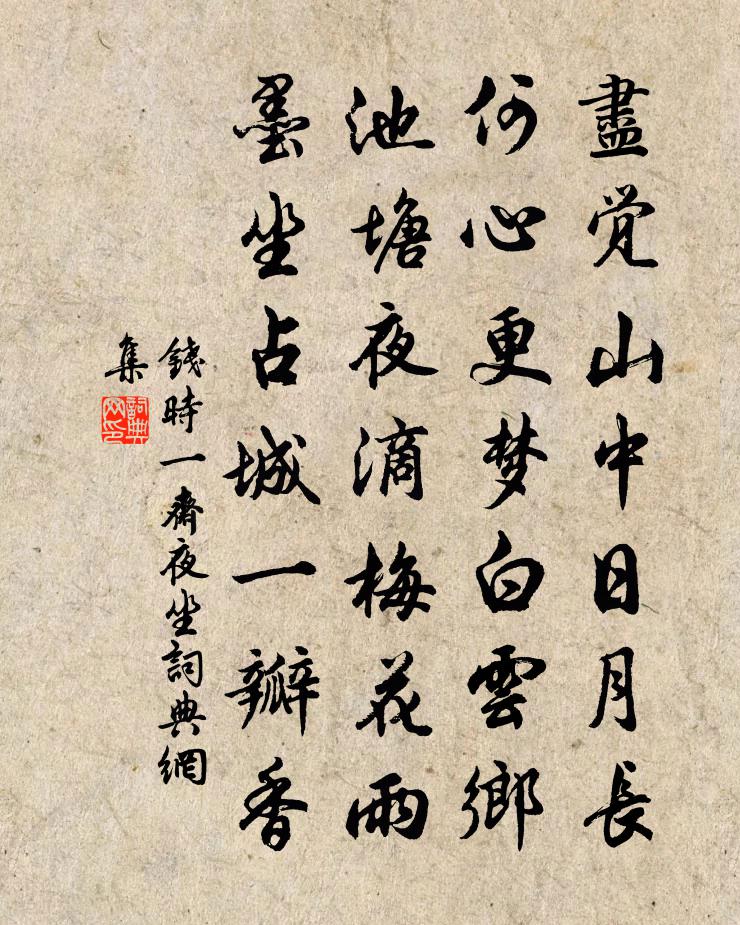 盡觉山中日月長
何心更梦白雲鄉
池塘夜滴梅花雨
墨坐占城一瓣香
錢時一齋夜坐詞典網
集
詞典
网印